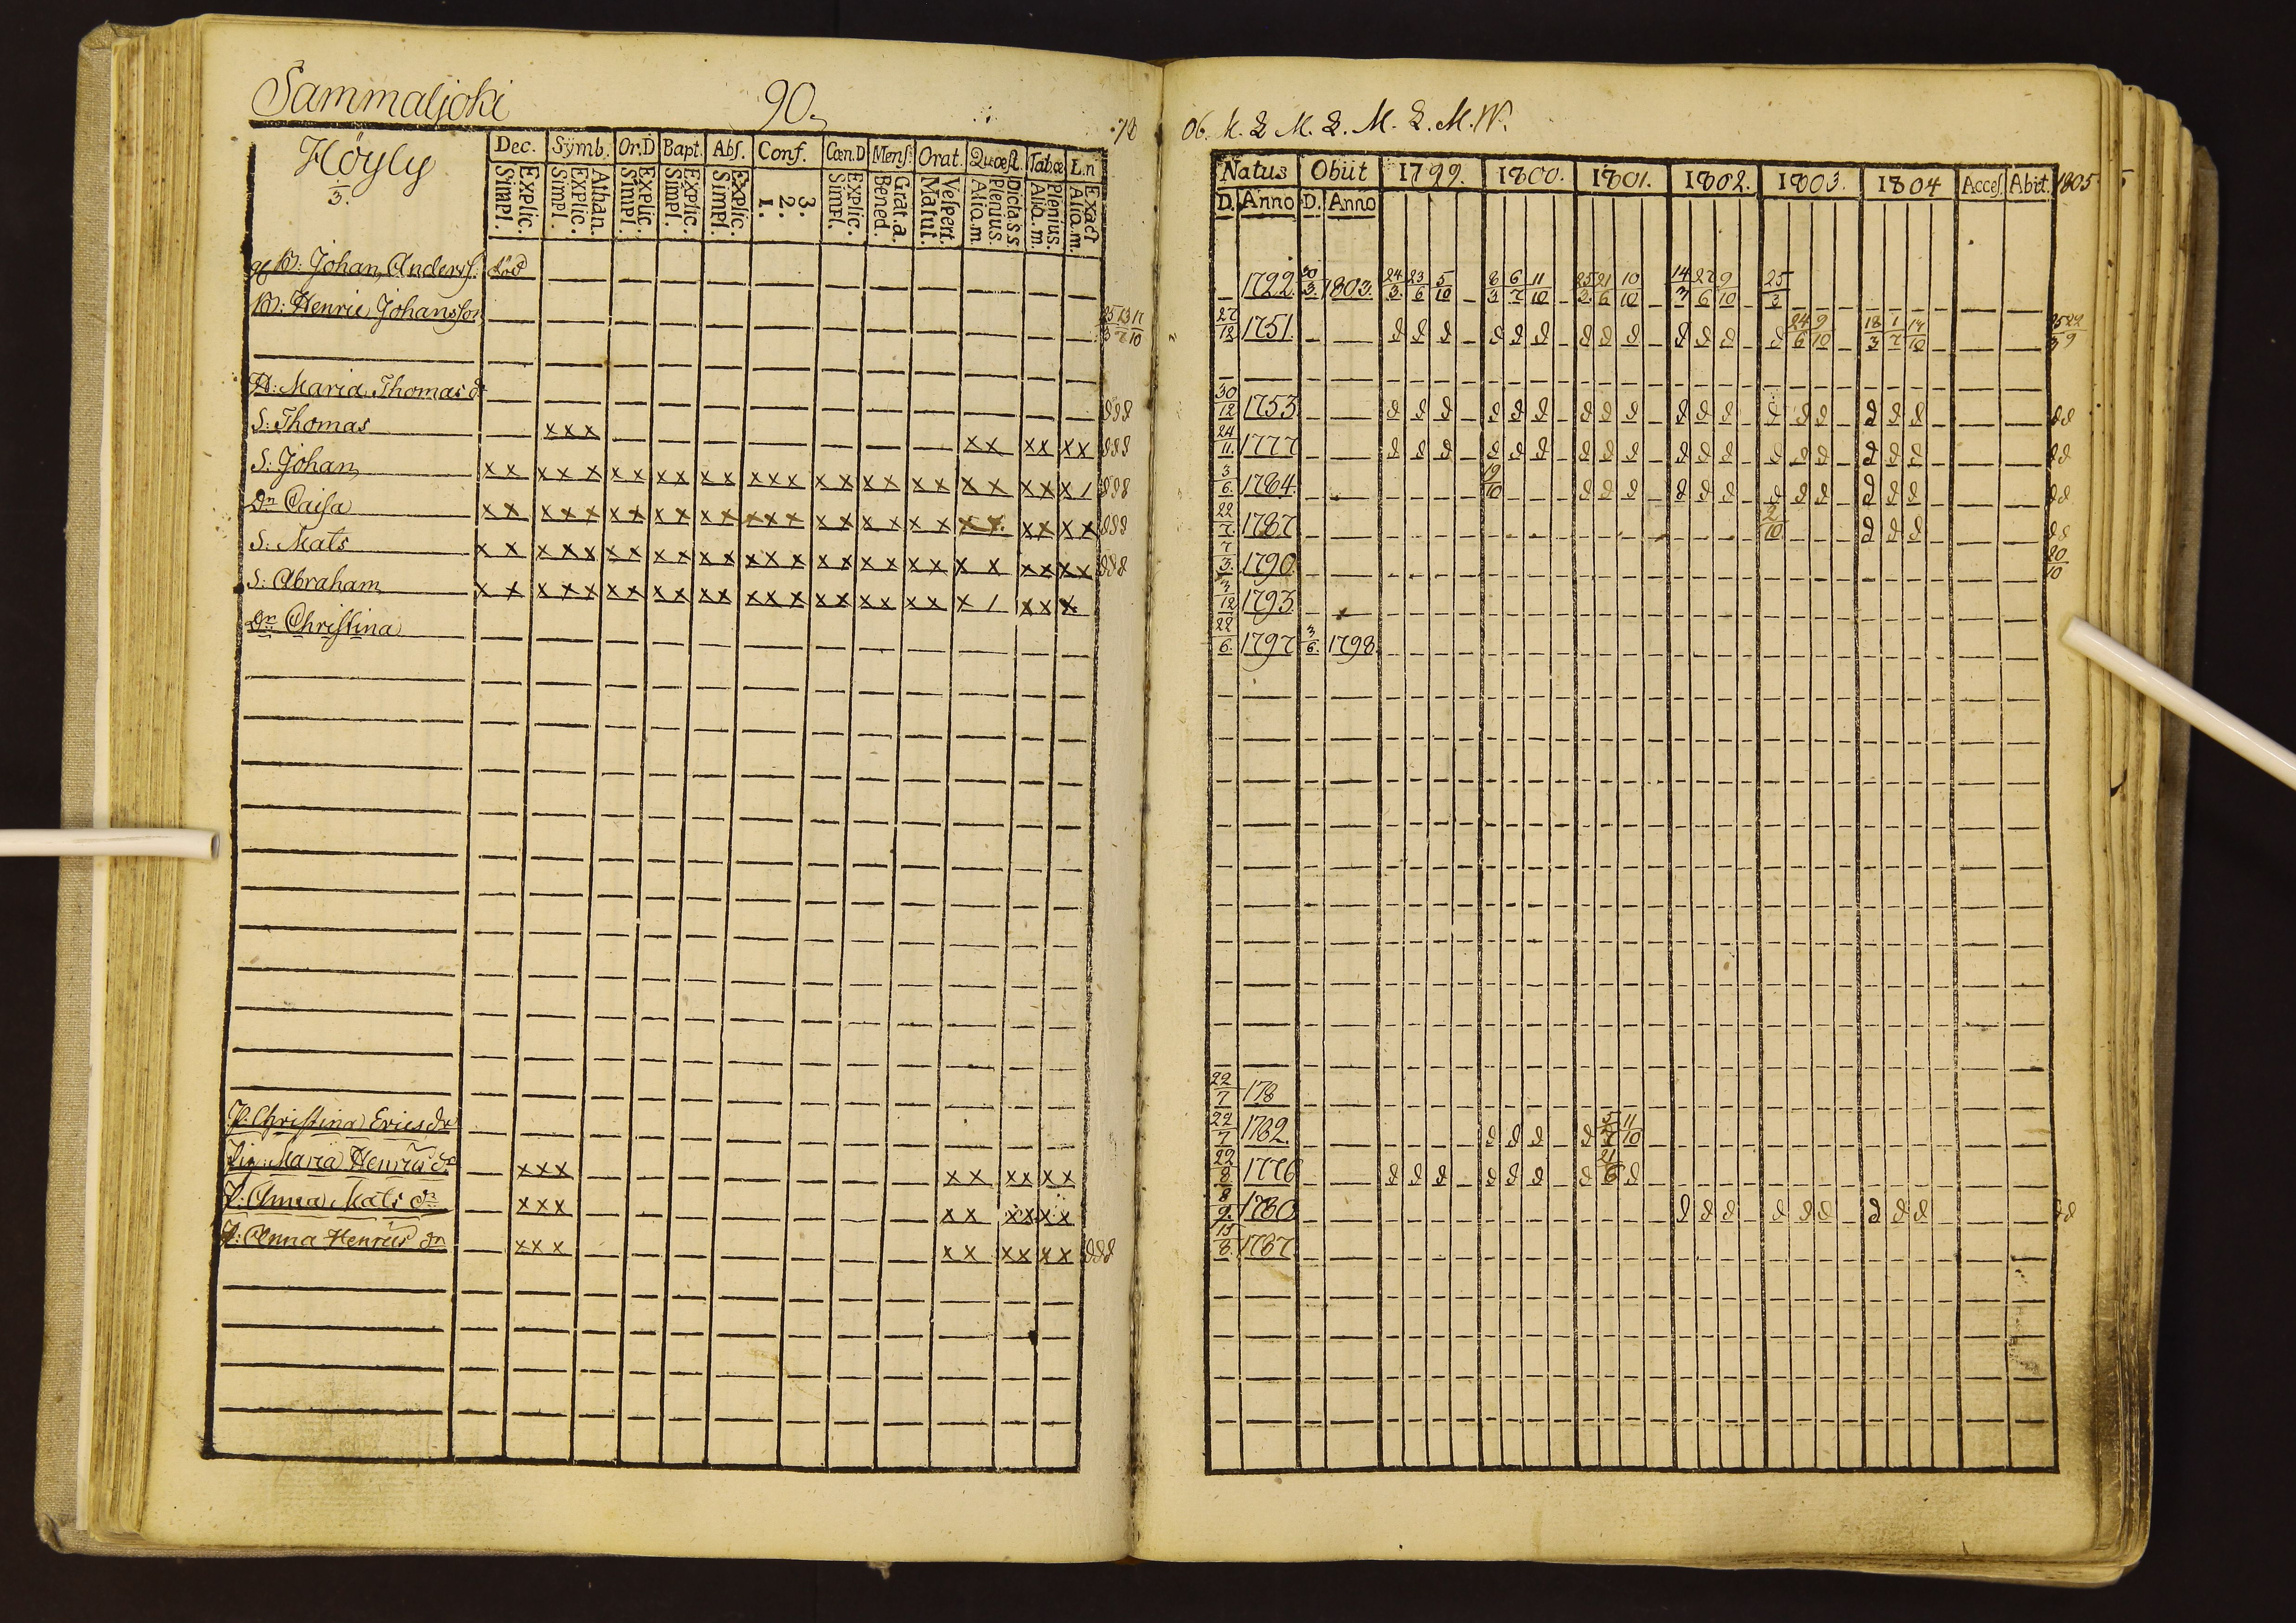 Sammaljoki 90.
Höyly
3.
Dec. Symb. Or.D Bapt. Abs. Conf. Cœn.D Mens. Orat. Quæst. Tabœ L.n
Explic. Simpl. Athan. Explic. Simpl. Explic. Simpl. Explic. Simpl. Explic. Simpl. 3. 2. 1. Explic. Simpl. Grat.a. Bened. Vespert. Matut. Dicta s.s. Plenius. Aliq.m. Plenius. Aliq.m. Exact Aliq.m.
Johan Anders
Henric Johansson
H: Maria Thomas dr
S: Thomas xxx xx xx xx
S: Johan xx xxx xx xx xx xxx xx xx xx xx xx x/
Dr Caisa xx xxx xx xx xx xxx xx xx xx xx xx xx
S: Mats xx xxx xx xx xx xxx xx xx xx xx xx xx
S: Abraham xx xxx xx xx xx xxx xx xx xx x/ xx x
Dr Christina
P. Christina Erics dr
Pig: Maria Henrics dr xxx xx xx xx
P: Anna Mats dr xxx xx xx xx
P: Anna Henrics dr xxx xx xx xx
06. M. L M. L. M. L. M. W.
Natus Obiit 1799. 1800. 1801. 1802. 1803. 1804 Acces. Abit. 1805
D. Anno D. Anno
1722 30/3 1803. 24/3 23/6 5/10 8/3 6/7 11/10 25/3 21/6 10/10 14/3 27/6 9/10 25/3
27/12 1751. d d d d d d d d d d d d d 24/6 9/10 18/3 1/7 14/10
30/12 1753 d d d d d d d d d d d d d d d d d d d d
24/11 1777 d d d d d d d d d d d d d d d d d d d d
3/6 1784 19/10 d d d d d d d d d d d d d d
22/7 1787 2/10 d d d d d
7/3 1790 20/10
3/12 1793
22/6 1797 3/6 1798
22/7 178
22/7 1782 d d d d 5/7 11/10
22/8 1776 d d d d d d d 21/6 d
8/9 1780 d d d d d d d d d d d
15/8 1787